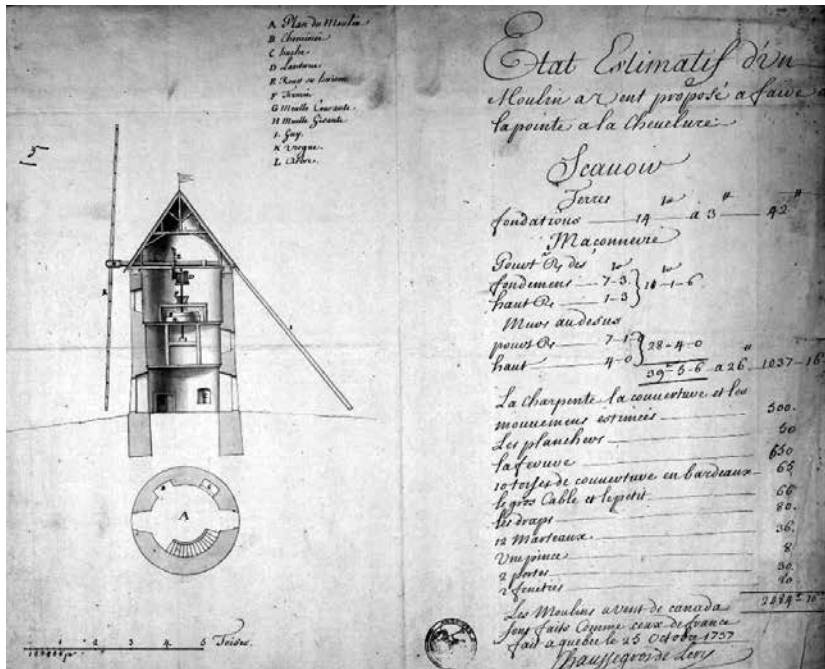 A Plan du Moulin
B Cheminée
C huche
D Lanterne
E Rouet ou herisson
F Tremie
G Meulle Courante
H Meulle Gisante
I. Guy.
K Vergue
L Arbre.
Etat Estimatif d'un
Moulin a vent proposé a faire a
la pointe a la Cheuelure
Scauoir
Terres
fondations 14 to a 3 # 42 #
Maçonnerie
Pourt. des
fondemens 7-3
haut 1-3
11-1-6
Murs au desus
pourt. 7-1
haut 4-0
28-4-0
39 to 5-6 a 26 # 1037-16
La Charpente la couuerture et les
mouuemens estimées 500.
Les planchers 50
la ferrure 650
10 toises de couuerture en bardeaux 65
le gros Cable et le petit 66
les draps 80.
12 Marteaux 36.
Une pince 8
2 portes 30.
2 fenêtres 20
Les Moulins a vent de canada
sont faits Comme ceux de france
fait a quebec le 25 Octobre 1737
Chaussegros de Lery
1 2 3 4 5 Toises.